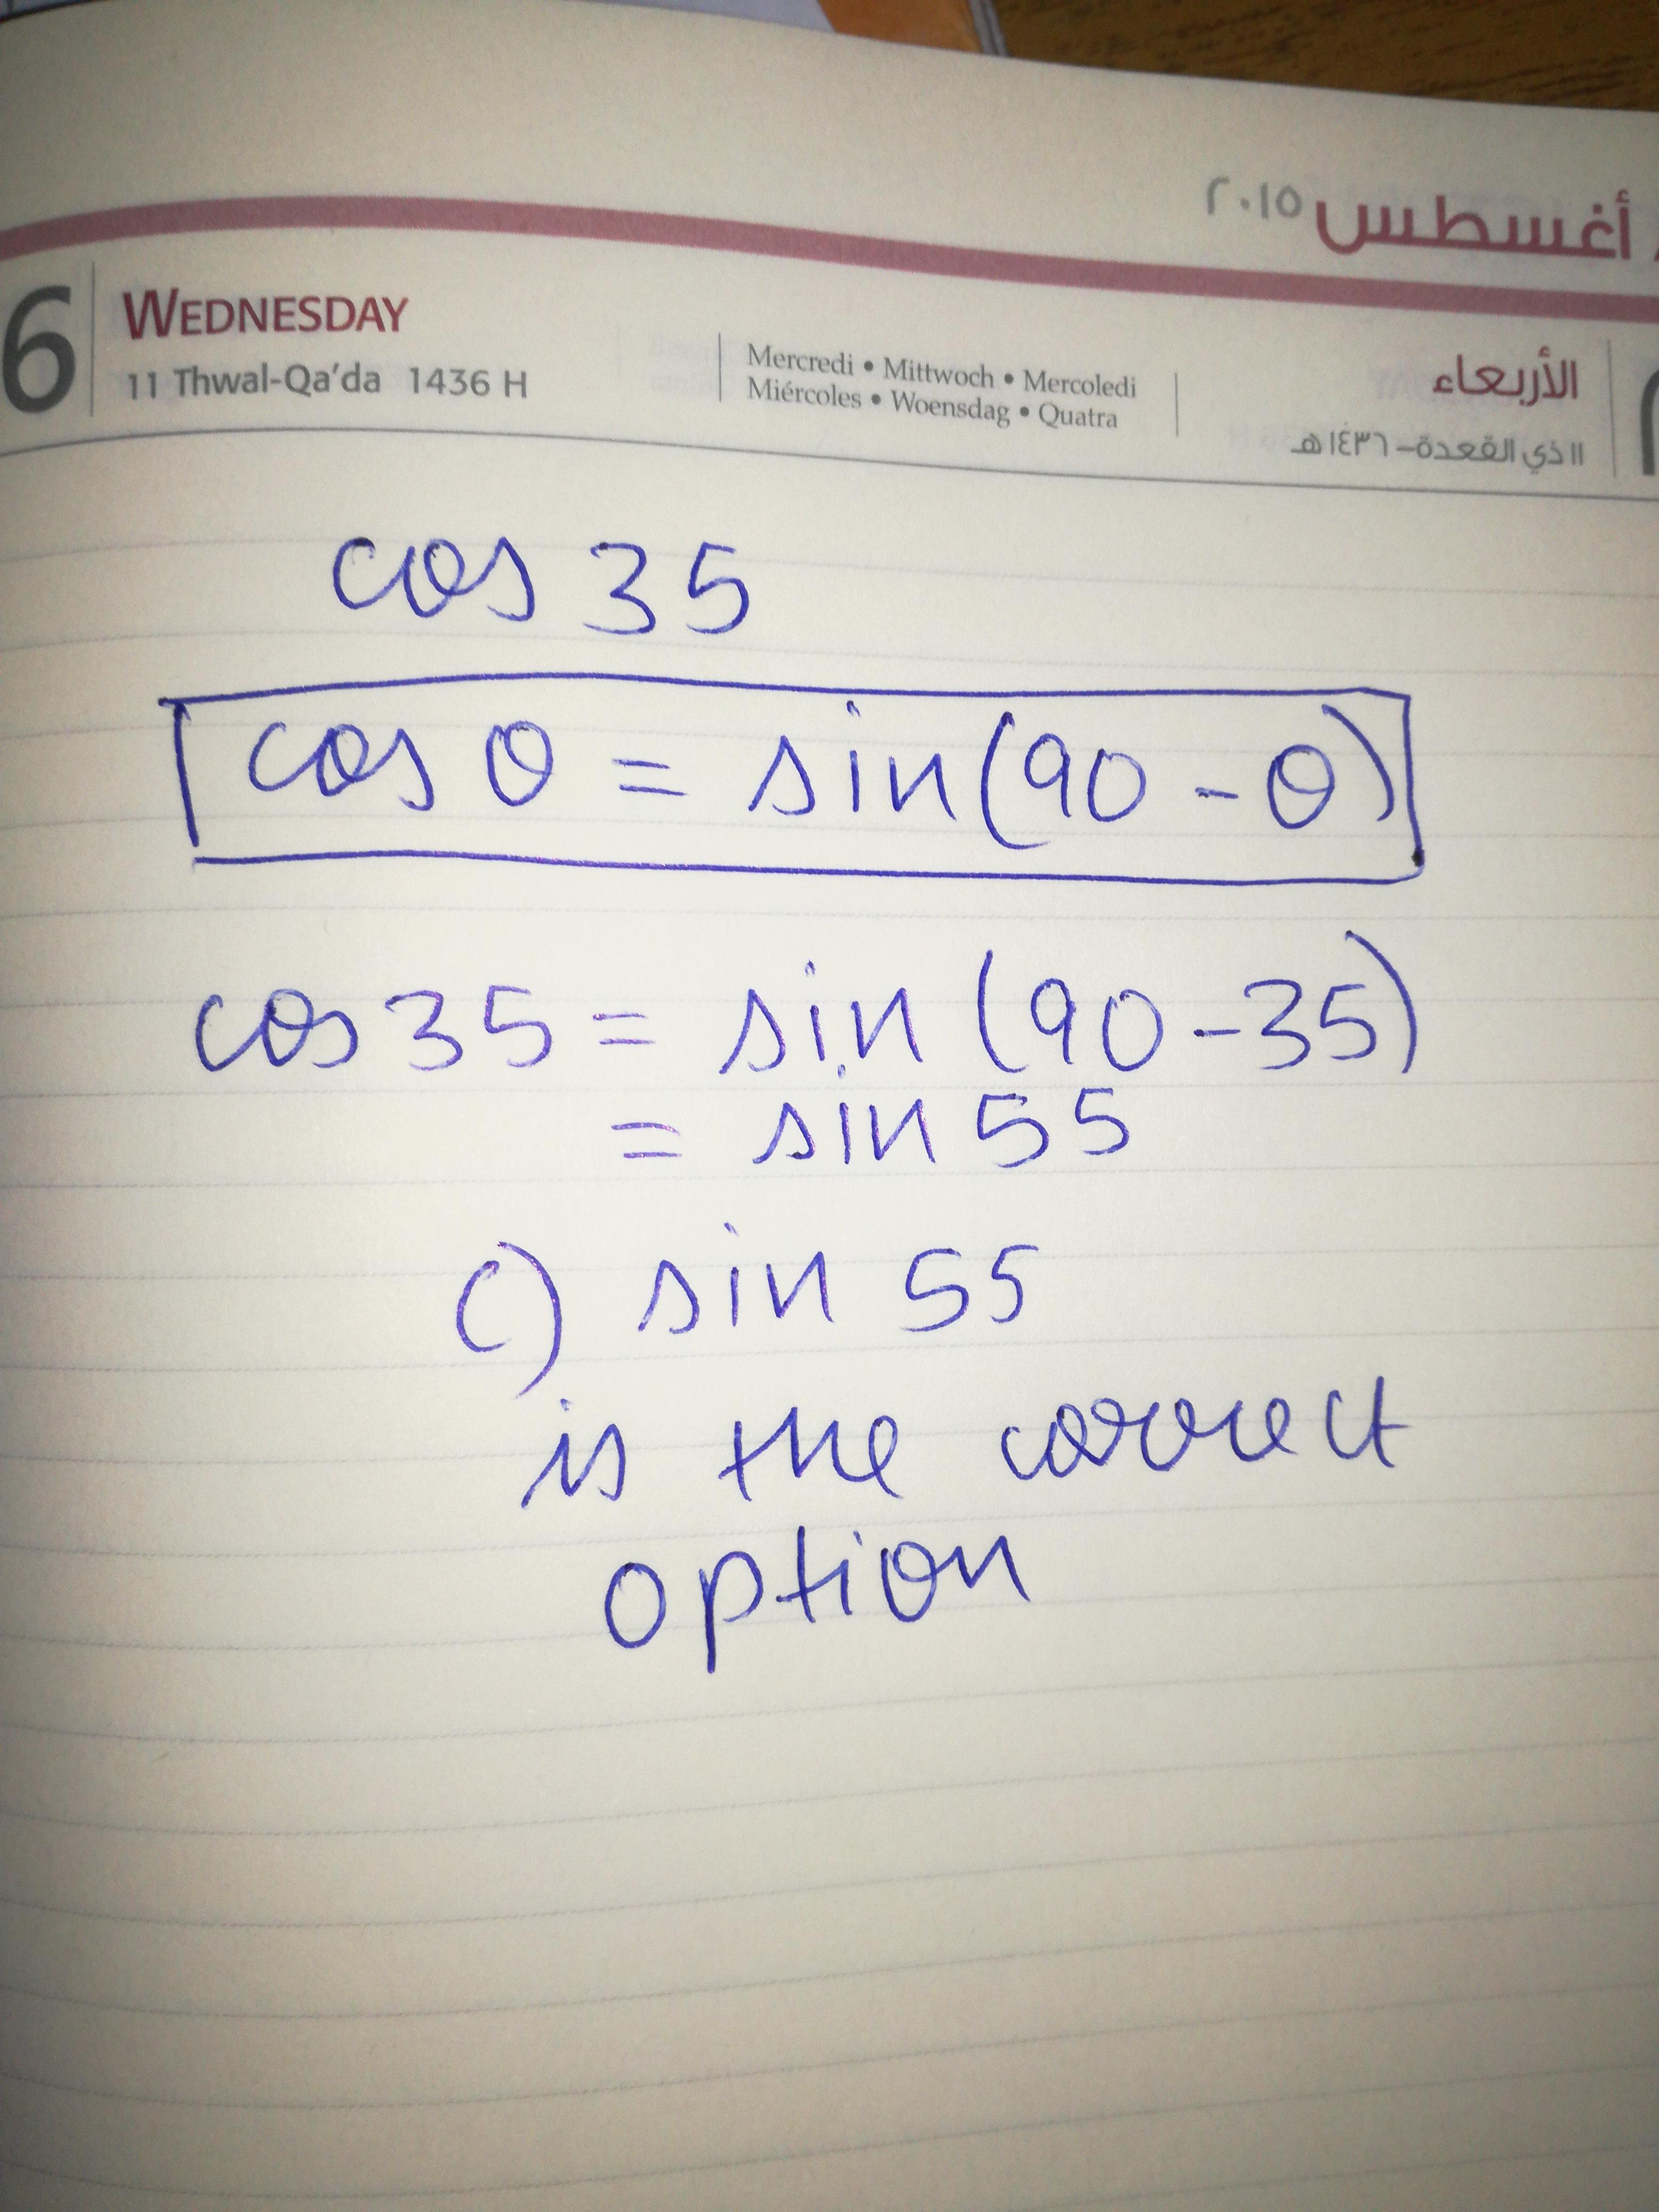 أغسطس ٢٠١٥
6 WEDNESDAY
11 Thwal-Qa'da 1436 H
Mercredi • Mittwoch • Mercoledi
Miércoles • Woensdag • Quatra
الأربعاء
١١ ذي القعدة - ١٤٣٦ هـ
cos 35
cos θ = sin(90 - θ)
cos 35 = sin (90 - 35)
= sin 55
c) sin 55
is the correct
option